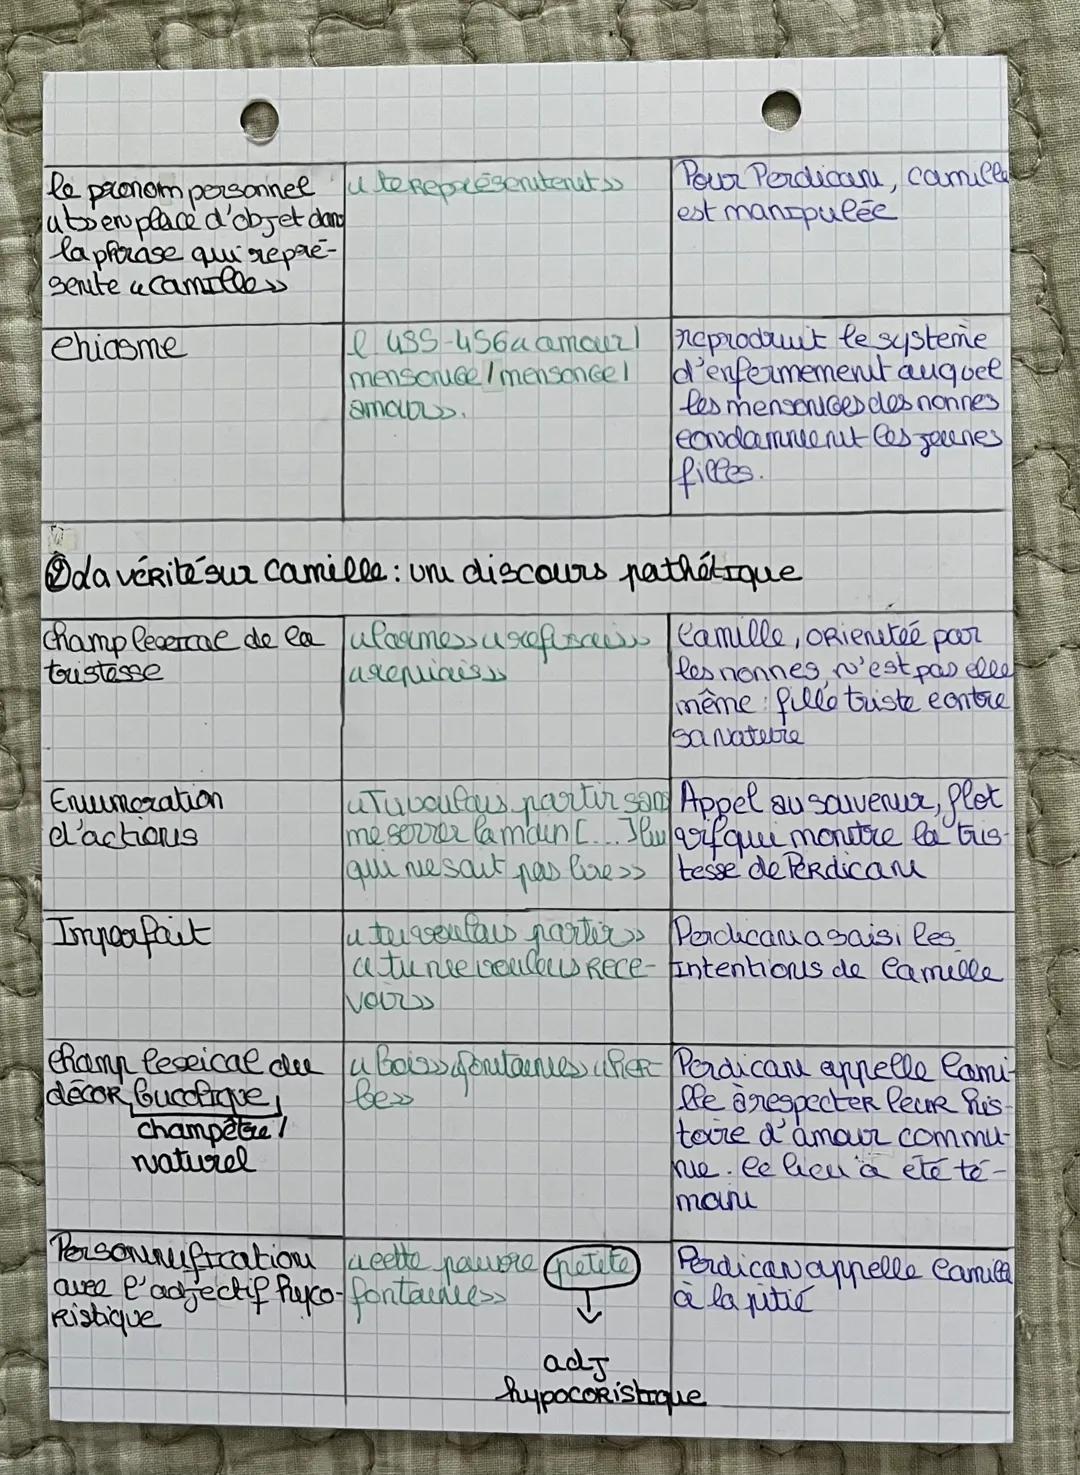 le pronom personnel
«te» en place d'objet dans
la phrase qui repré-
sente «Camille»
«te représentent»
Pour Perdican, camille
est manipulée
chiasme
l 455-456 «amour/
mensonge/mensonge/
amour».
reproduit le système
d'enfermement auquel
les mensonges des nonnes
condamnent les jeunes
filles.
② La vérité sur Camille : un discours pathétique
champ lexical de la
tristesse
«larmes» «refusais»
«reniais»
Camille, orientée par
les nonnes, n'est pas elle
même : fille triste contre
sa nature
Enumeration
d'actions
«Tu voulais partir sans
me serrer la main [...]
qui ne sait pas lire»
Appel au souvenir,
qui montre la tris-
tesse de Perdican
Imparfait
«tu voulais partir»
«tu ne voulais rece-
voir»
Perdican a saisi les
intentions de Camille
champ lexical du
décor bucolique,
champêtre/
naturel
«Bois» «fontaines» «her-
be»
Perdican appelle Cami-
lle à respecter leur his-
toire d'amour commu-
ne. Ce lieu a été té-
moin
Personnification
avec l'adjectif hyco-
ristique
«cette pauvre petite
fontaine»
adj
hypocoristique
Perdican appelle Camille
à la pitié